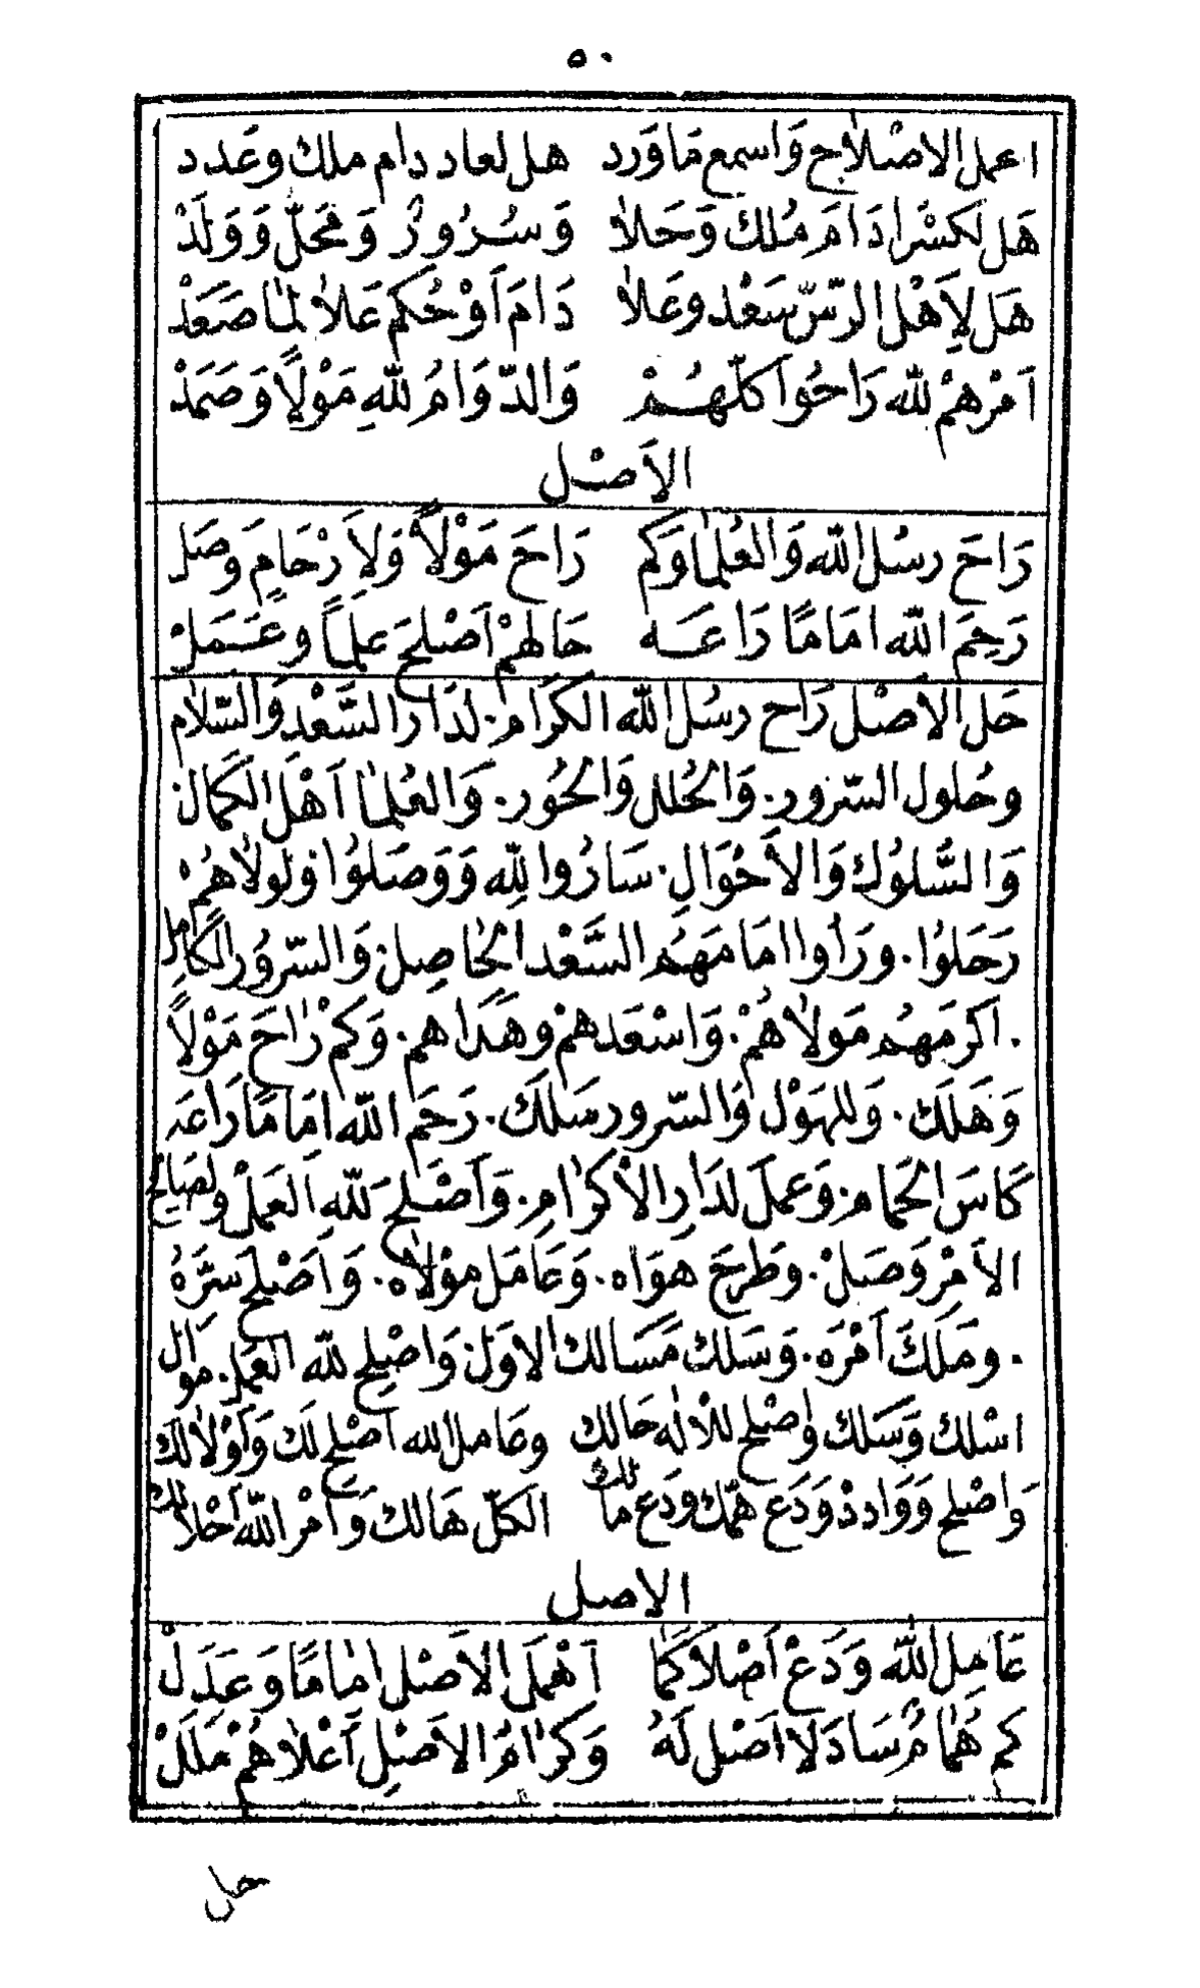 ٥٠
اعمل الاصْلاح وَاسمع مَا وَرد هل لعاد دام ملك وعَدد
هَل لكسْرا دَامَ مُلك وَحَلاٰ وَسُرُورٌ وَمَحَلّ وَوَلَدْ
هَل لِاَهْل الرّسّ سَعْد وعَلاٰ دَامَ اَوْ حُكم عَلاٰ لمَا صَعَدْ
اَمْرهمْ لله رَاحُوا كلّهُمْ وَالدّوَامُ للهِ مَوْلًا وَصَمَدْ
الاَصْل
رَاحَ رسُل الله وَالعُلمَا وَكم رَاحَ مَوْلًا وَلاَرْحَامٍ وصَل
رَحِمَ الله امَامًا رَاعَه حَالهمْ اَصْلحَ علمًا وعَمَلْ
حَل الاَصْل رَاح رسُل الله الكرَام. لدَار السَّعْد وَالسّلاٰم
وحُلول السّرور. وَالحُلل وَالحُور. وَالعُلمَا اَهْل الكَمَال
وَالسُّلوُك وَالاَحْوَال. سَارُوا للهِ وَوَصَلوُا وَلولاٰهُمْ
رَحَلوُا. ورَاوا امَامَهُم السَّعْد الحَاصِل. وَالسّرُور الكَامل
. اَكرَمَهُم مَولاٰهُمْ. وَاسْعَدهمْ وهَدَاهم. وَكمْ رَاحَ مَوْلًا
وَهَلَك. وَللهَوْل وَالسّرور سَلَك. رَحَم الله امَامًا رَاعَه
كَاسَ الحَمَام. وَعملَ لدَارِ الاكرٰامِ. وَاَصْلح للهِ العَمَلْ ولصَالح
الاَمْر وَصَلْ. وطَرحَ هوَاه. وَعَامَل مَوْلاٰه. وَاَصْلح سَرَّهُ
. ومَلَكَ اَمْرَه. وَسَلك مَسَالك الاوَل وَاصْلح لله العَمل. موال
اسْلك وَسَلك وٰاصْلح للاٰله حَالك وعَامل الله اَصْلح لَك وَاَوْلاٰ لك
وَاصْلح وَوَادد وَدَع همّك ودَع مالك الكلّ هَالك وَاَمْر الله اَحْلاٰ لك
الاصل
عَامِل الله وَدَعْ اَصْلاً كمَا اَهْمَل الاَصْل امَامًا وَعَدَلْ
كم هُمَامٌ سَادَ لا اصْل لَهُ وَكرٰامُ الاَصْلِ اَعْلاٰهُمْ مَلَلْ
حل